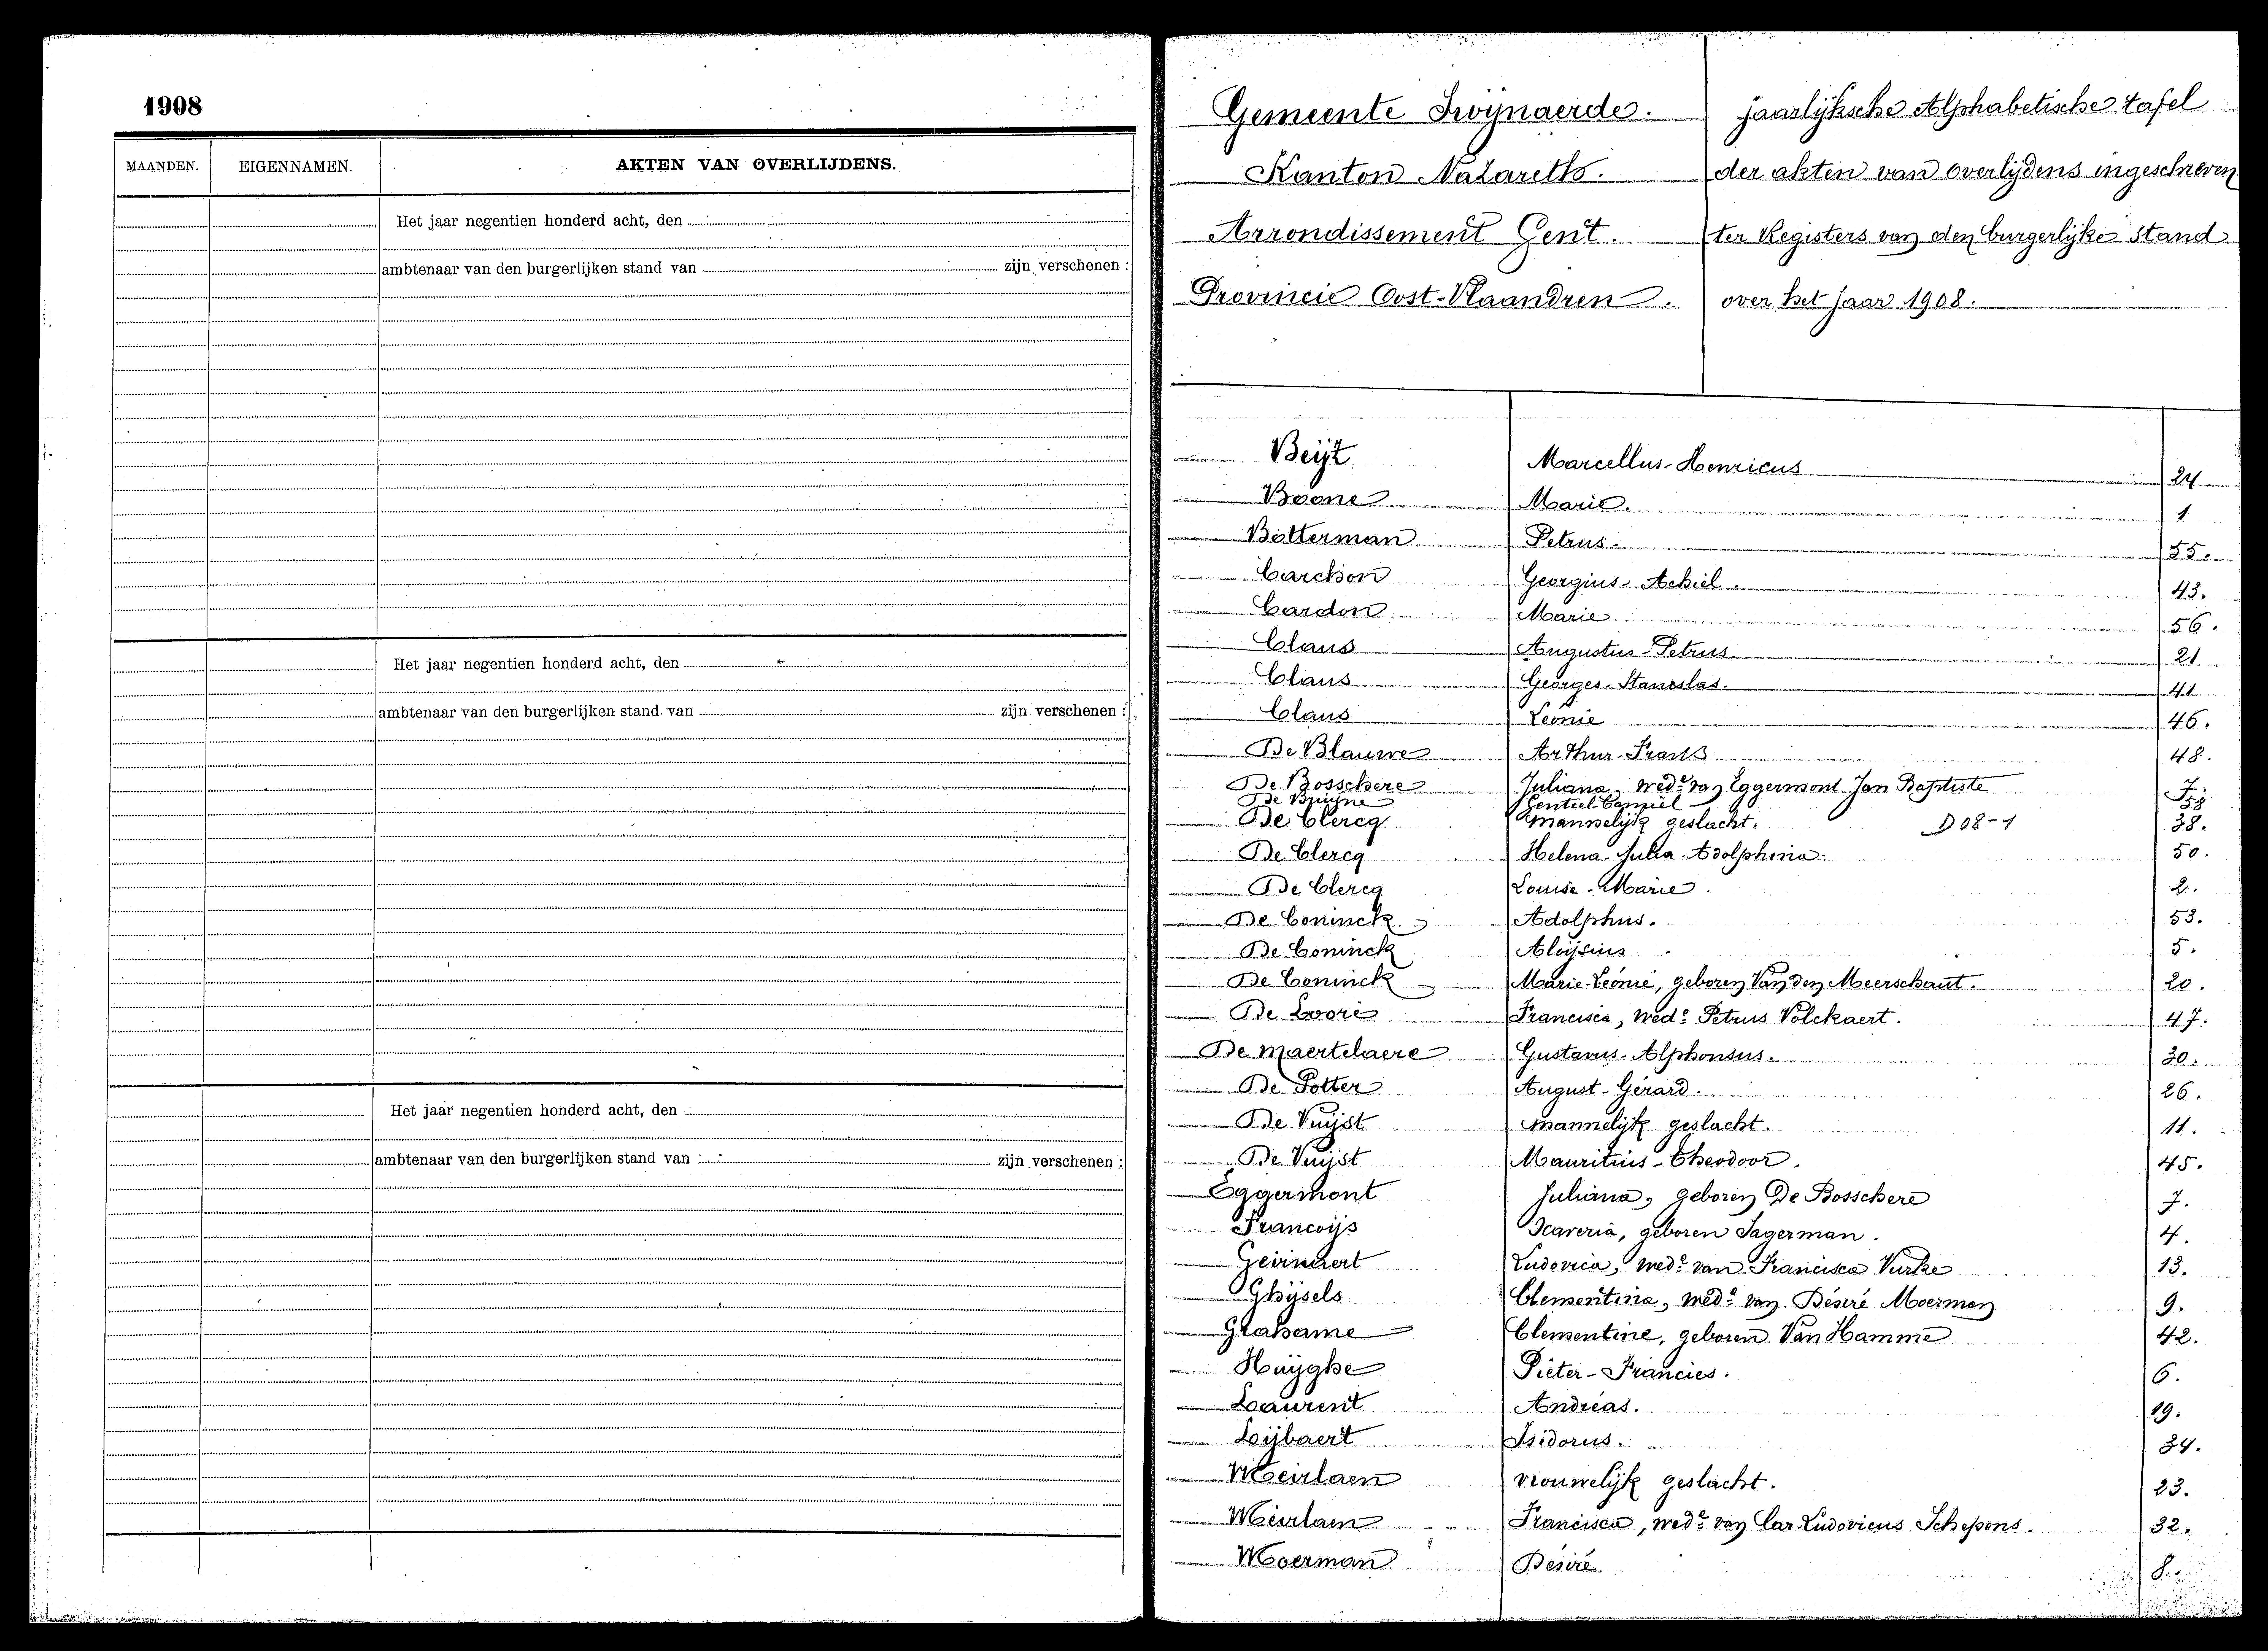 1908
MAANDEN. EIGENNAMEN. AKTEN VAN OVERLIJDENS.
Het jaar negentien honderd acht, den
ambtenaar van den burgerlijken stand van zijn verschenen :
Het jaar negentien honderd acht, den
ambtenaar van den burgerlijken stand van zijn verschenen :
Het jaar negentien honderd acht, den
ambtenaar van den burgerlijken stand van zijn verschenen :
Gemeente Zwijnaerde. jaarlijksche Alphabetische tafel
Kanton Nazareth. der akten van overlijdens ingeschreven
Arrondissement Gent. ter Registers van den burgerlijke stand
Provincie Oost-Vlaandren. over het jaar 1908.
Beijt Marcellus-Henricus 24
Boone Marie. 1
Botterman Petrus. 55.
Carchon Georgius-Achiel. 43.
Cardon Marie 56.
Claus Augustus-Petrus 21
Claus Georges-Stanislas. 41
Claus Leonie 46.
De Blauwe Arthur-Frans 48.
De Bosschere Juliana, wede van Eggermont Jan Baptiste 7.
De Bruijne Gentiel-Camiel
De Clercq mannelijk geslacht. D08-1 38.
De Clercq Helena-Julia-Adolphina. 50.
De Clercq Louise-Marie. 2.
De Coninck Adolphus. 53.
De Coninck Aloijsius 5.
De Coninck Marie-Leonie, geboren Van den Meerschaut. 20.
De Loore Francisca, wede Petrus Volckaert. 47.
De Maertelaere Gustavus-Alphonsus. 30.
De Potter August-Gérard. 26.
De Vuijst mannelijk geslacht. 11.
De Vuijst Mauritius-Theodoor. 45.
Eggermont Juliana, geboren De Bosschere 7.
Francoijs Xaveria, geboren Sagerman. 4.
Geirnaert Ludovica, wede van Francisca Vurke 13.
Ghijsels Clementina, wede van Desiré Moerman 9.
Glahame Clementine, geboren Van Hamme 42.
Huijghe Pieter-Francies. 6.
Laurent Andréas. 19.
Lijbaert Isidorus. 34.
Meirlaen vrouwelijk geslacht. 23.
Meirlaen Francisca, wede van Car. Ludovicus Schepens. 32.
Moerman Desiré 8.